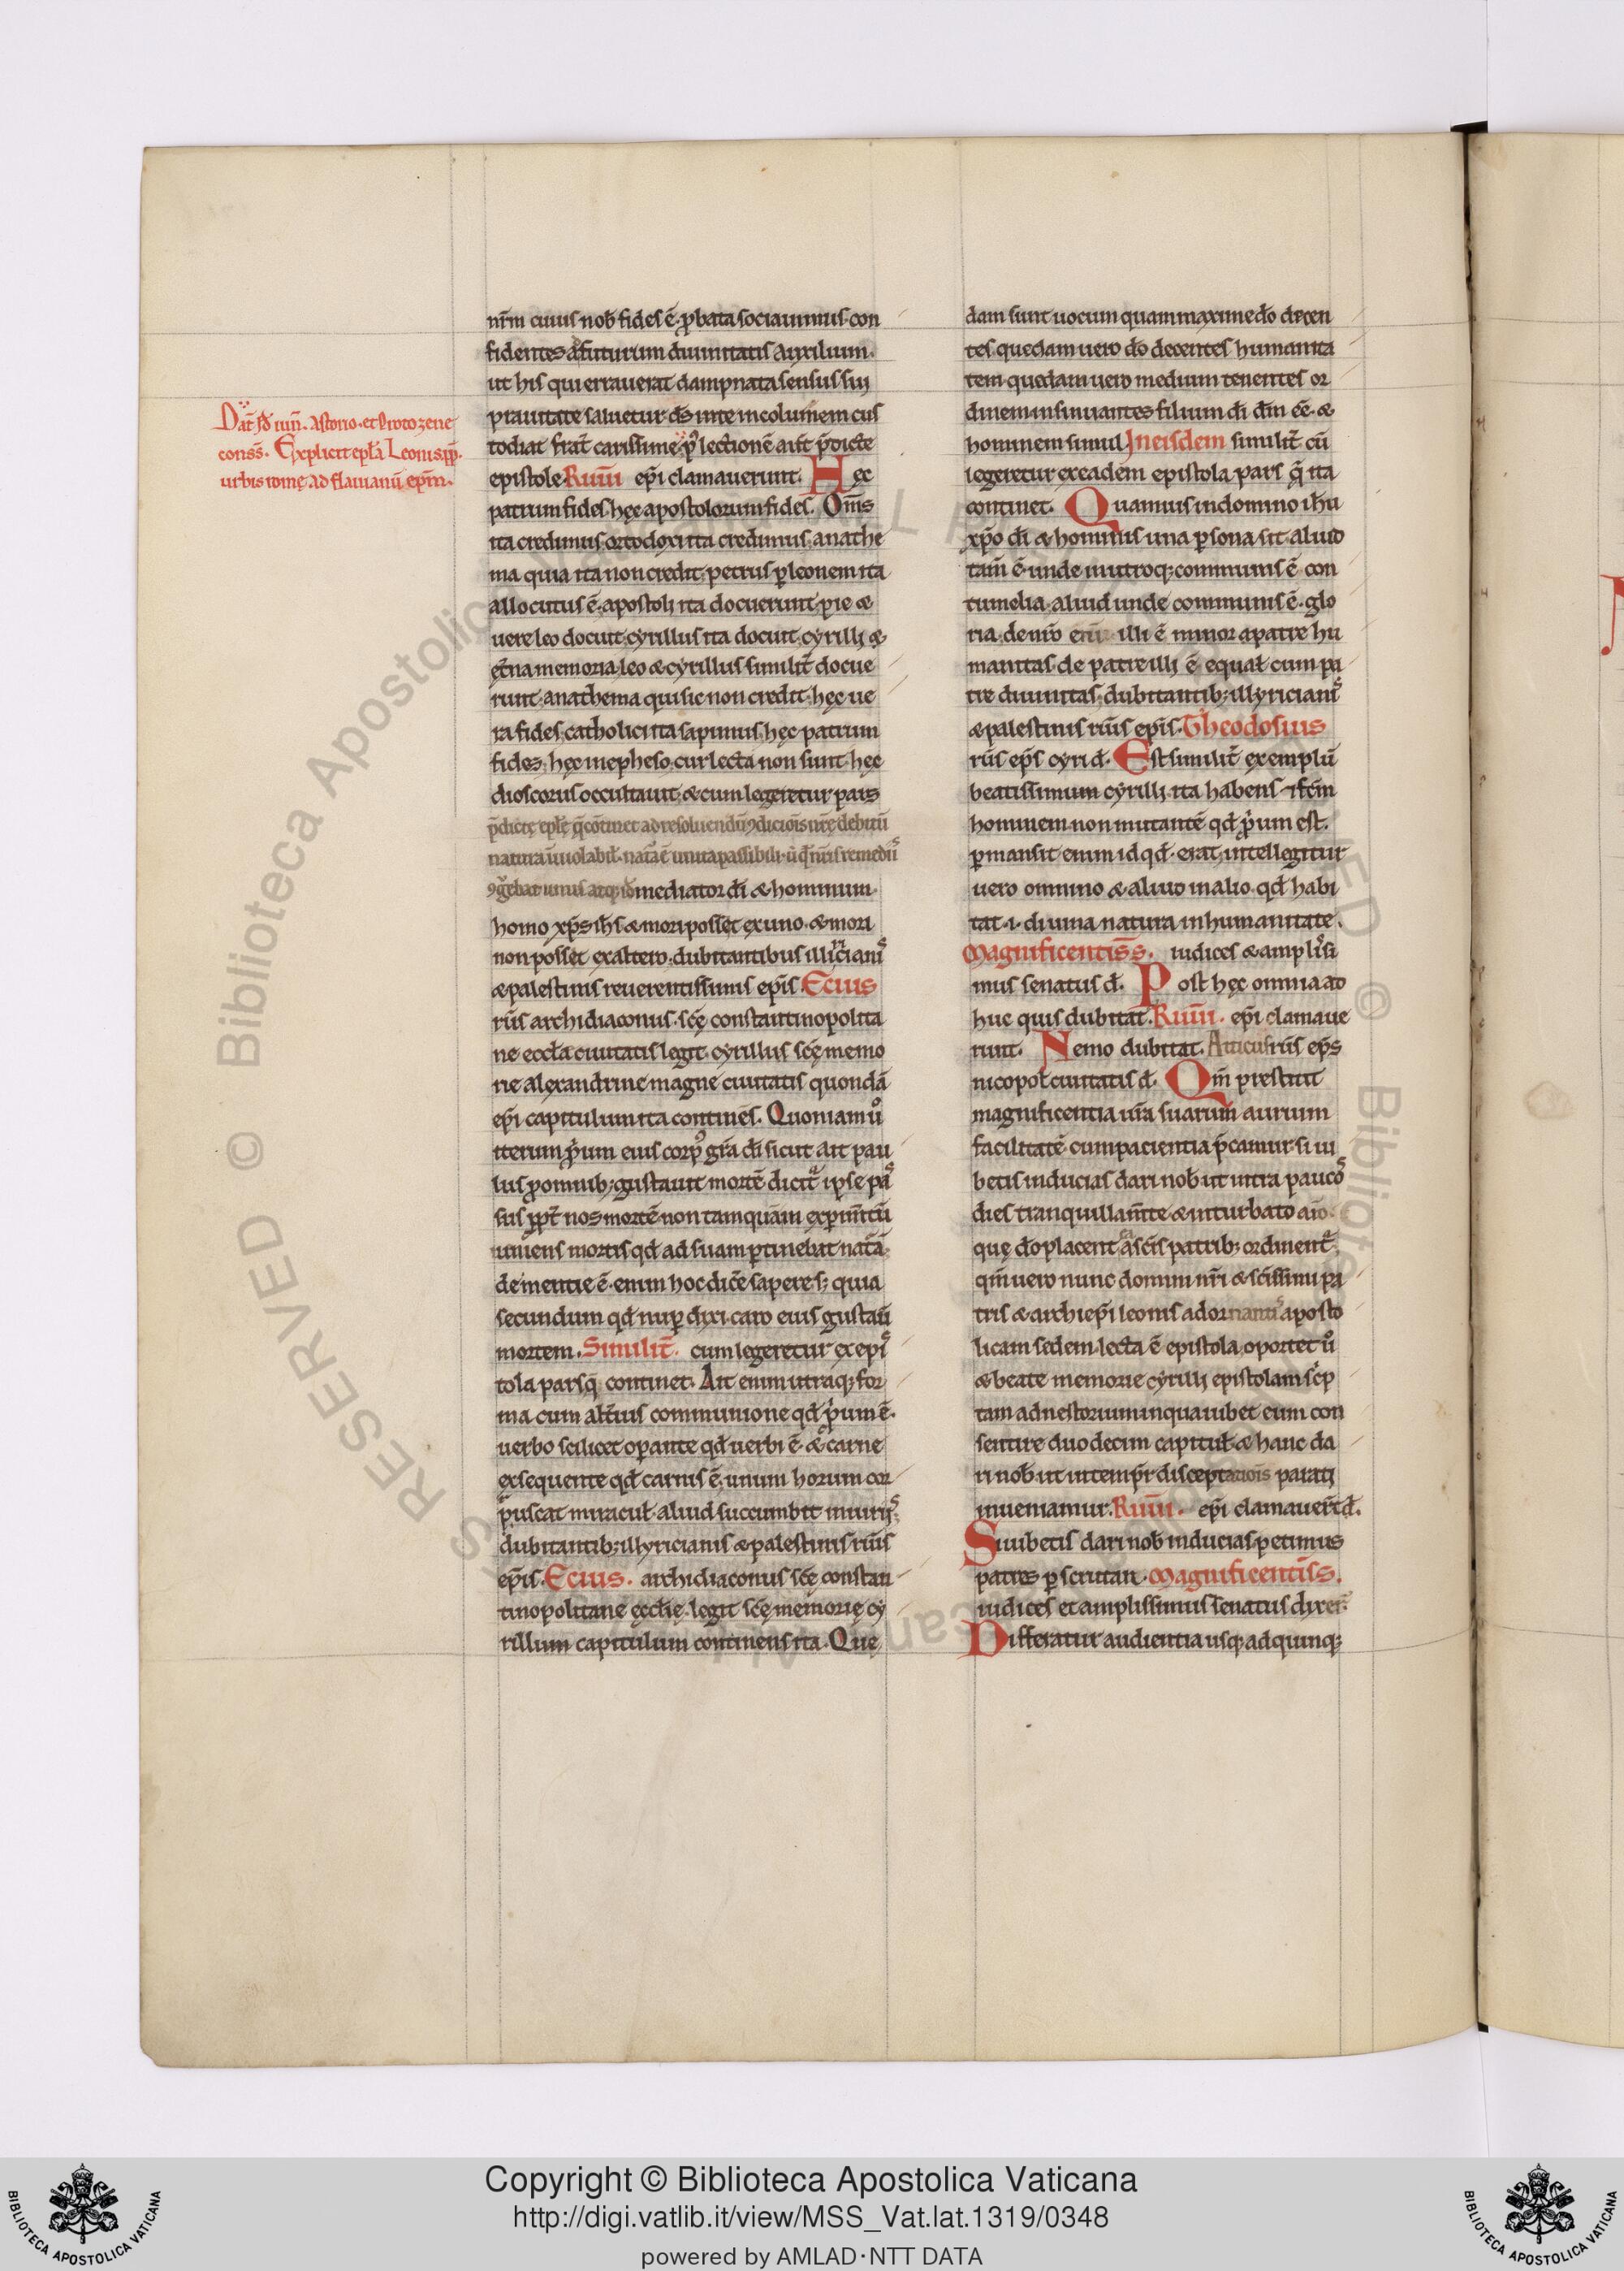 Dat̄ id̄ iun̄. Astorio. et Proto zene
conss̄. Explicit epl̄a Leonis pp̄.
urbis rome ad flauianū ep̄m.
nr̄m cuius nob̄ fides ē ꝓbata sociauimus. con
fidentes affuturum diuinitatis auxilium.
ut his qui errauerat dampnata sensus sui
prauitate saluetur. ds̄ inte incolumem cus
todiat frat̄ carissime. p᷒ lectionē aut̄ p̄dicte
epistole Ruīn ep̄i clamauerunt. Hęc
patrum fides hęc apostolorum fides. Om̄s
ita credimus. ortodoxi ita credimus. anathe
ma quia ita non credit. petrus ꝑ leonem ita
allocutus ē. apostoli ita docuerunt. pie &
uere leo docuit. cyrillus ita docuit. cyrilli &
et̄na memoria. leo & cyrillus similit̄ docue
runt. anathema qui sic non credit. hęc ue
ra fides. catholici ita sapimus. hęc patrum
fides. hęc inepheso. cur lecta non sunt. hęc
dioscorus occultauit. & cum legeretur pars
p̄dictę epl̄ę q̄ cōtinet ad resoluendū ꝯdiciōis nr̄ę debitū
natura īuiolabil̄. nat̄ā ē unita passibili. ū qd̄ nr̄is remediis
ꝯgr̄ebat unus atq; id̄ mediator dī & hominum.
homo xp̄s ih̄s & mori posset ex uno. & mori
non posset exaltero. dubitantibus illiriciani᷒
& palestinis reuerentissimis ep̄is. Ecius
rūs archidiaconus. scę constantinopolita
ne eccl̄a ciuitatis legit. cyrillus scę memo
rie alexandrine magne ciuitatis quondā
ep̄i capitulum ita continēs. Quoniam ů
iterum ꝓprium eius corp᷒ grā dī sicut ait pau
lus ꝓ omnib; gustauit mortē dicit̄ ipse pa᷒
sus ꝓpt̄ nos mortē. non tamquam exꝑim̄tū
uniens mortis qd̄ ad suam ꝑtinebat nat̄ā.
dementie ē. enim hoc dicē sapere s; quia
secundum qd̄ nuꝑ dixi. caro eius gustaū
mortem. Similit̄. cum legeretur ex epi᷒
tola pars q̄ continet. Ait enim utraq; for
ma cum alt̄ius communione qd̄ ꝓprium ē.
uerbo scilicet operante qd̄ uerbi ē. & carne
exsequente qd̄ carnis ē. unum horum cor
puscat miracul̄. aliud succumbit iniuri᷒;
dubitantib; illyricianis & palestinis rūis
ep̄is. Ecius. archidiaconus scę constan
tinopolitane ęccl̄ię. legit scę memorię cy
rillum capitulum continens ita. Que
dam sunt uocum quam maxime dō decen
tes. quedam uero dō decentes humanita
tem. quedam uero medium tenentes or
dinem insinuantes filium dī dm̄ ēe. &
hominem simul Ineisdem similit̄ cū
legeretur exeadem epistola pars q̄ ita
continet. Quamuis indomino ih̄u
xp̄o dī & hominis una ꝑsona sit. aliud
tam̄ ē. unde inutroq; communis ē con
tumelia. aliud unde communis ē. glo
ria. de nr̄o enī illi ē minor apatre hu
manitas. de patre illi ē equal̄ cum pa
tre diuinitas. dubitantib; illyriciani᷒
& palestinis rūis ep̄is. Theodosius
rūs ep̄s cyri d̄. Est similit̄ exemplū
beatissimum cyrilli. ita habens & fc̄m
hominem non mutantē qd̄ ꝓprium est.
ꝑmansit enim id qd̄. erat. intellegitur
uero omnino & aliud in alio. qd̄ habi
tat .i. diuina natura inhumanitate.
Magnificentiss̄. iudices & amplissi
mus senatus d̄. Post hęc omnia ad
huc quis dubitat. Ruīn. ep̄i clamaue
runt. Nemo dubitat. Atticus rūs ep̄s
nicopol̄ ciuitatis d̄. Qm̄ prestitit
magnificentia ur̄a suarum aurium
facilitatē cum pacientia p̄camur. si iu
betis inducias dari nob̄ ut intra pauco᷒
dies tranquillam̄te & inturbato aīo
que dō placent & scīs patrib; ordinent̄.
qm̄ uero nunc domini nr̄i & scīssimi pa
tris & archiep̄i leonis adornanti᷒ aposto
licam sedem. lecta ē epistola. oportet ů
& beate memorie cyrilli epistolam sc̄p
tam ad nestorium inqua iubet eum con
sentire duodecim capitul̄. & hanc da
ri nob̄. ut intemp̄r disceptatiōis parati
inueniamur. Ruīn. ep̄i clamauer̄t d̄.
Si iubetis dari nob̄ inducias. petimus
patres ꝑscrutari. Magnificentiss̄.
iudices et amplissimus senatus dixer̄.
Differatur audientia usq; ad quinq;
Copyright © Biblioteca Apostolica Vaticana
http://digi.vatlib.it/view/MSS_Vat.lat.1319/0348
powered by AMLAD·NTT DATA
BIBLIOTECA APOSTOLICA VATICANA
BIBLIOTECA APOSTOLICA VATICANA